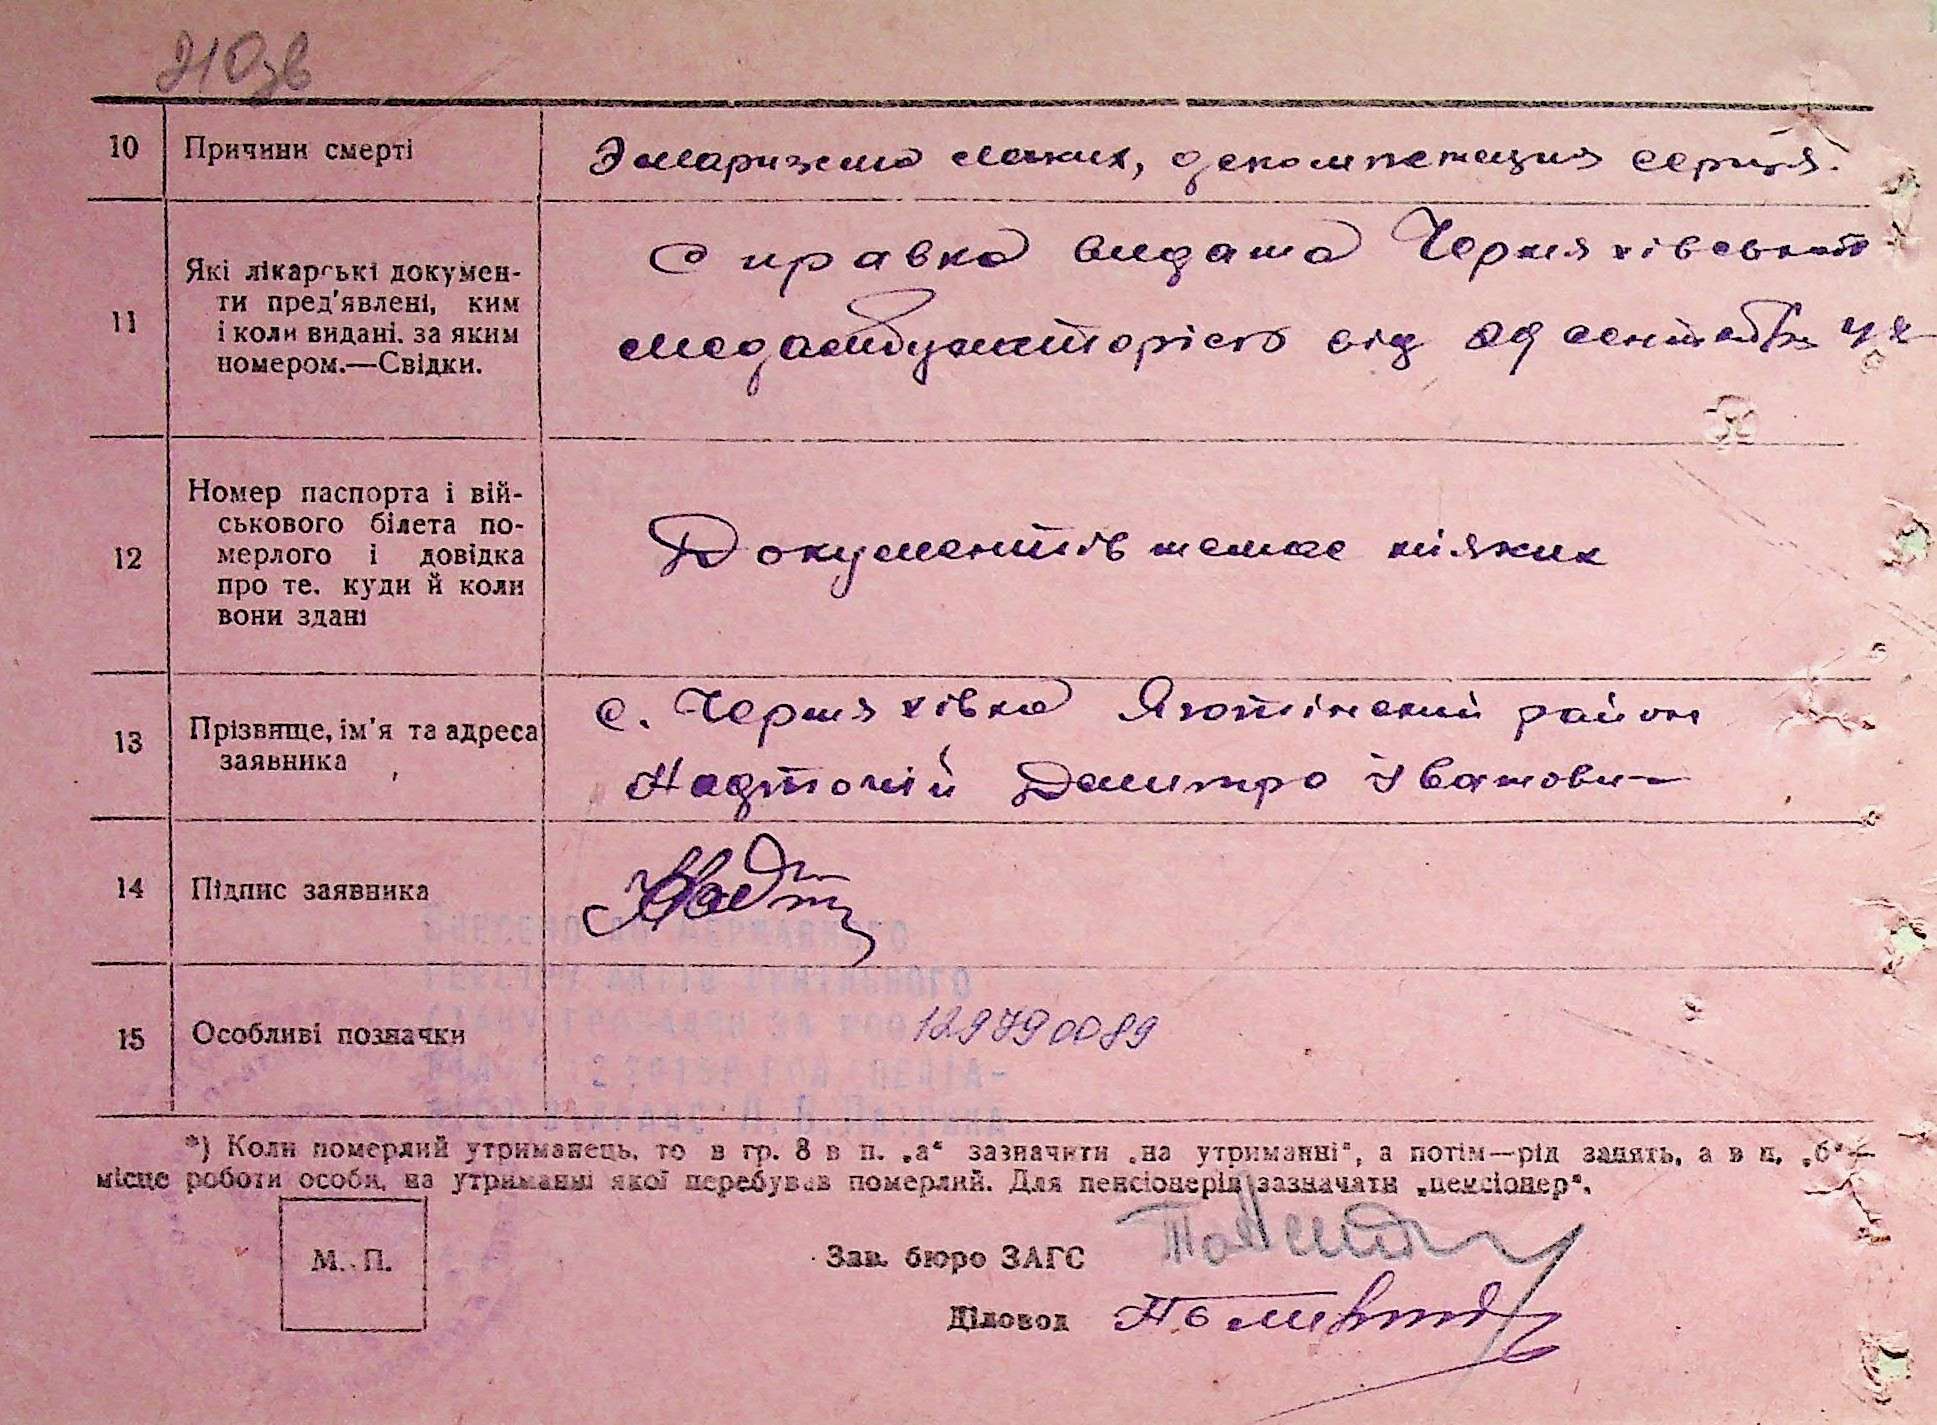 10 Причини смерті
легких, декомпенсация серця.
11 Які лікарські докумен-
ти пред'явлені, ким
і коли видані. за яким
номером.—Свідки.
Справка видана Черняхівською
медамбулаторією від 29 сентября
12 Номер паспорта і вій-
ськового білета по-
мерлого і довідка
про те. куди й коли
вони здані
Документів немає ніяких
13 Прізвище, ім'я та адреса
заявника
с. Черняхівка Яготінский район
Надточій Дмитро Іванович
14 Підпис заявника
Надт
15 Особливі позначки
129790089
*) Коли померлий утриманець, то в гр. 8 в п. „а“ зазначити „на утриманні“, а потім—рід занять, а в п. „б“—
місце роботи особи, на утриманні якої перебував померлий. Для пенсіонерів зазначати „пенсіонер“.
М. П.
Зав. бюро ЗАГС
Діловод